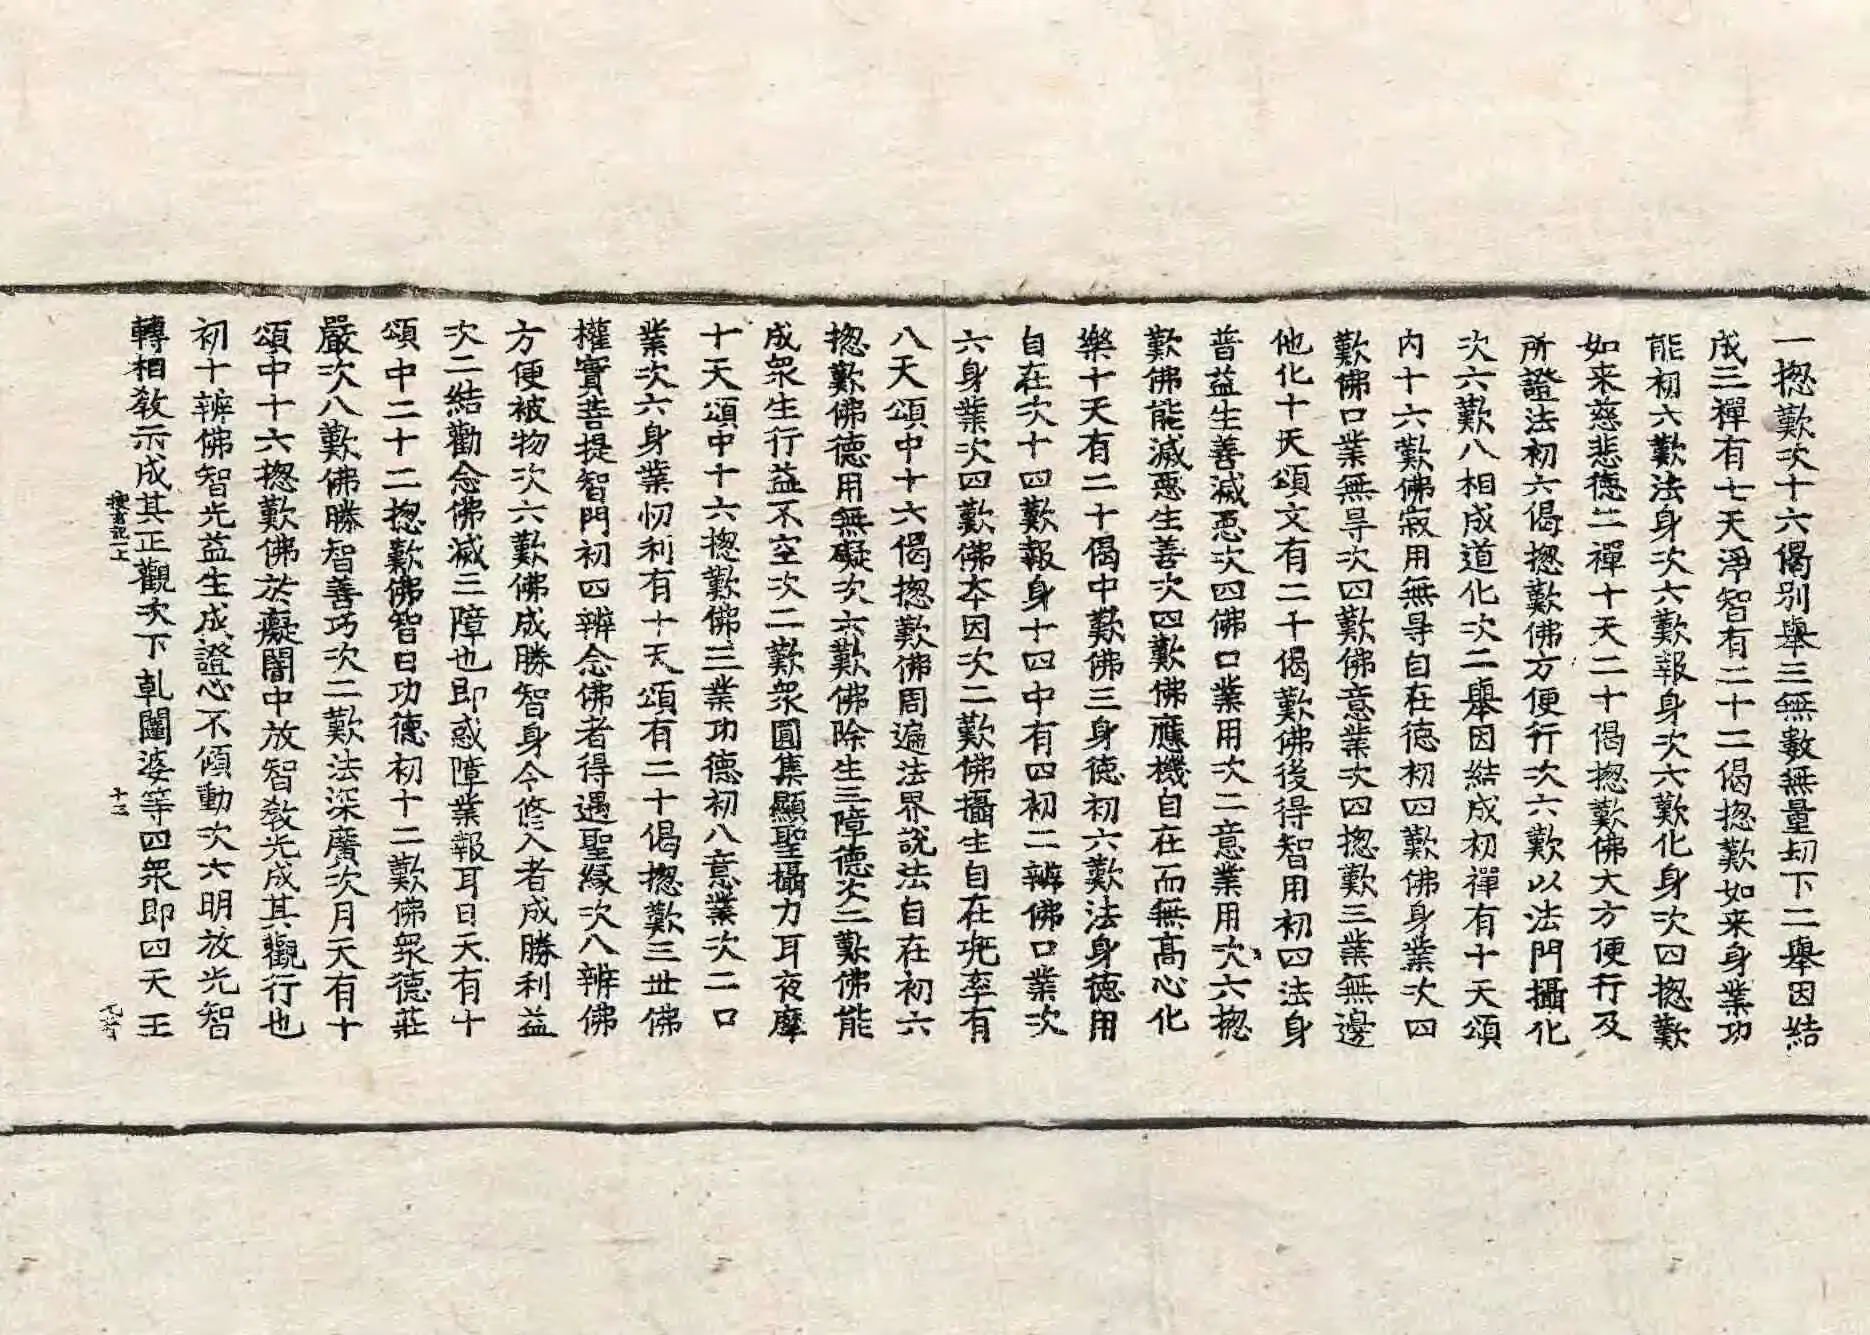 一揔歎次十六偈別舉三無數無量刧下二舉因結
成三禪有七天淨智有二十二偈揔歎如来身業功
能初六歎法身次六歎報身次六歎化身次四揔歎
如来慈悲德二禪十天二十偈揔歎佛大方便行及
所證法初六偈揔歎佛方便行次六歎以法門攝化
次六歎八相成道化次二舉因結成初禪有十天頌
内十六歎佛寂用無㝵自在德初四歎佛身業次四
歎佛口業無㝵次四歎佛意業次四揔歎三業無邊
他化十天頌文有二千偈歎佛後得智用初四法身
普益生善滅惡次四佛口業用次二意業用次六揔
歎佛能滅惡生善次四歎佛應機自在而無髙心化
樂十天有二十偈中歎佛三身德初六歎法身德用
自在次十四歎報身十四中有四初二辨佛口業次
六身業次四歎佛夲因次二歎佛攝生自在兜率有
八天頌中十六偈揔歎佛周遍法界說法自在初六
揔歎佛德用無礙次六歎佛除生三障德次二歎佛能
成衆生行益不空次二歎衆圓集顯聖攝力耳夜摩
十天頌中十六揔歎佛三業功德初八意業次二口
業次六身業忉利有十天頌有二十偈揔歎三世佛
權實菩提智門初四辨念佛者得遇聖緣次八辨佛
方便被物次六歎佛成勝智身今修入者成勝利益
次二結勸念佛滅三障也即惑障業報耳日天有十
頌中二十二揔歎佛智日功德初十二歎佛衆德莊
嚴次八歎佛勝智善巧次二歎法深廣次月天有十
頌中十六揔歎佛於癡闇中放智教光成其觀行也
初十辨佛智光益生成證心不傾動次六明放光智
轉相教示成其正觀次下乹闥婆等四衆即四天王
搜玄記一上 十三